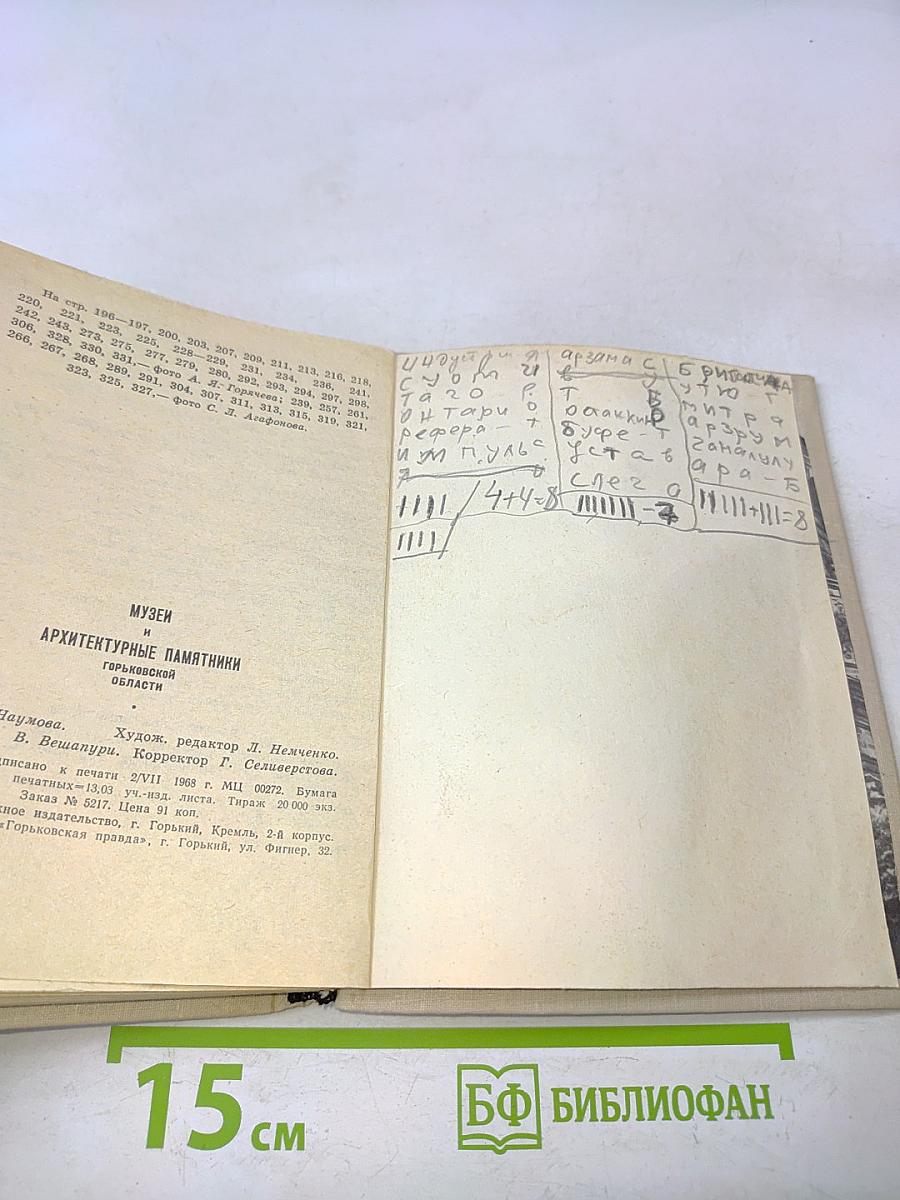 На стр. 196—197, 200, 203, 207, 209, 211, 213, 216, 218,
220, 221, 223, 225, 228—229, 231, 234, 236, 241,
242, 243, 273, 275, 277, 279, 280, 292, 293, 294, 297, 298,
306, 328, 330, 331,— фото А. Я. Горячева; 239, 257, 261,
266, 267, 268, 289, 291, 304, 307, 311, 313, 315, 319, 321,
323, 325, 327,— фото С. Л. Агафонова.
МУЗЕИ
И
АРХИТЕКТУРНЫЕ ПАМЯТНИКИ
ГОРЬКОВСКОЙ
ОБЛАСТИ
Наумова. Худож. редактор Л. Немченко.
В. Вешапури. Корректор Г. Селиверстова.
дписано к печати 2/VII 1968 г. МЦ 00272. Бумага
печатных=13,03 уч.-изд. листа. Тираж 20 000 экз.
Заказ № 5217. Цена 91 коп.
жное издательство, г. Горький, Кремль, 2-й корпус.
«Горьковская правда», г. Горький, ул. Фигнер, 32.
суоми
таго р
онтари о
рефера - т
импульс
4+4=8
арзама с
т
буфе - т
устав
слег о
- 7
утю г
митра
арзрум
ара - б
+ =8
15 см
БФ БИБЛИОФАН